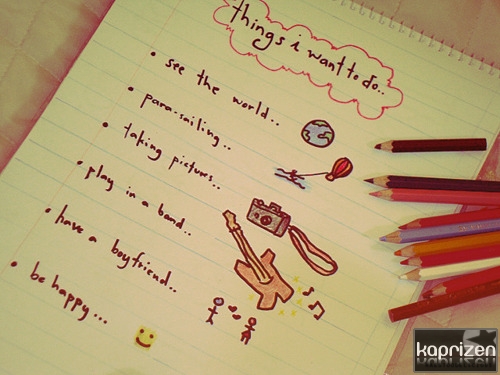 things i want to do..
• see the world..
• para-sailing..
• taking pictures..
• play in a band..
• have a boyfriend..
• be happy...
kaprizen